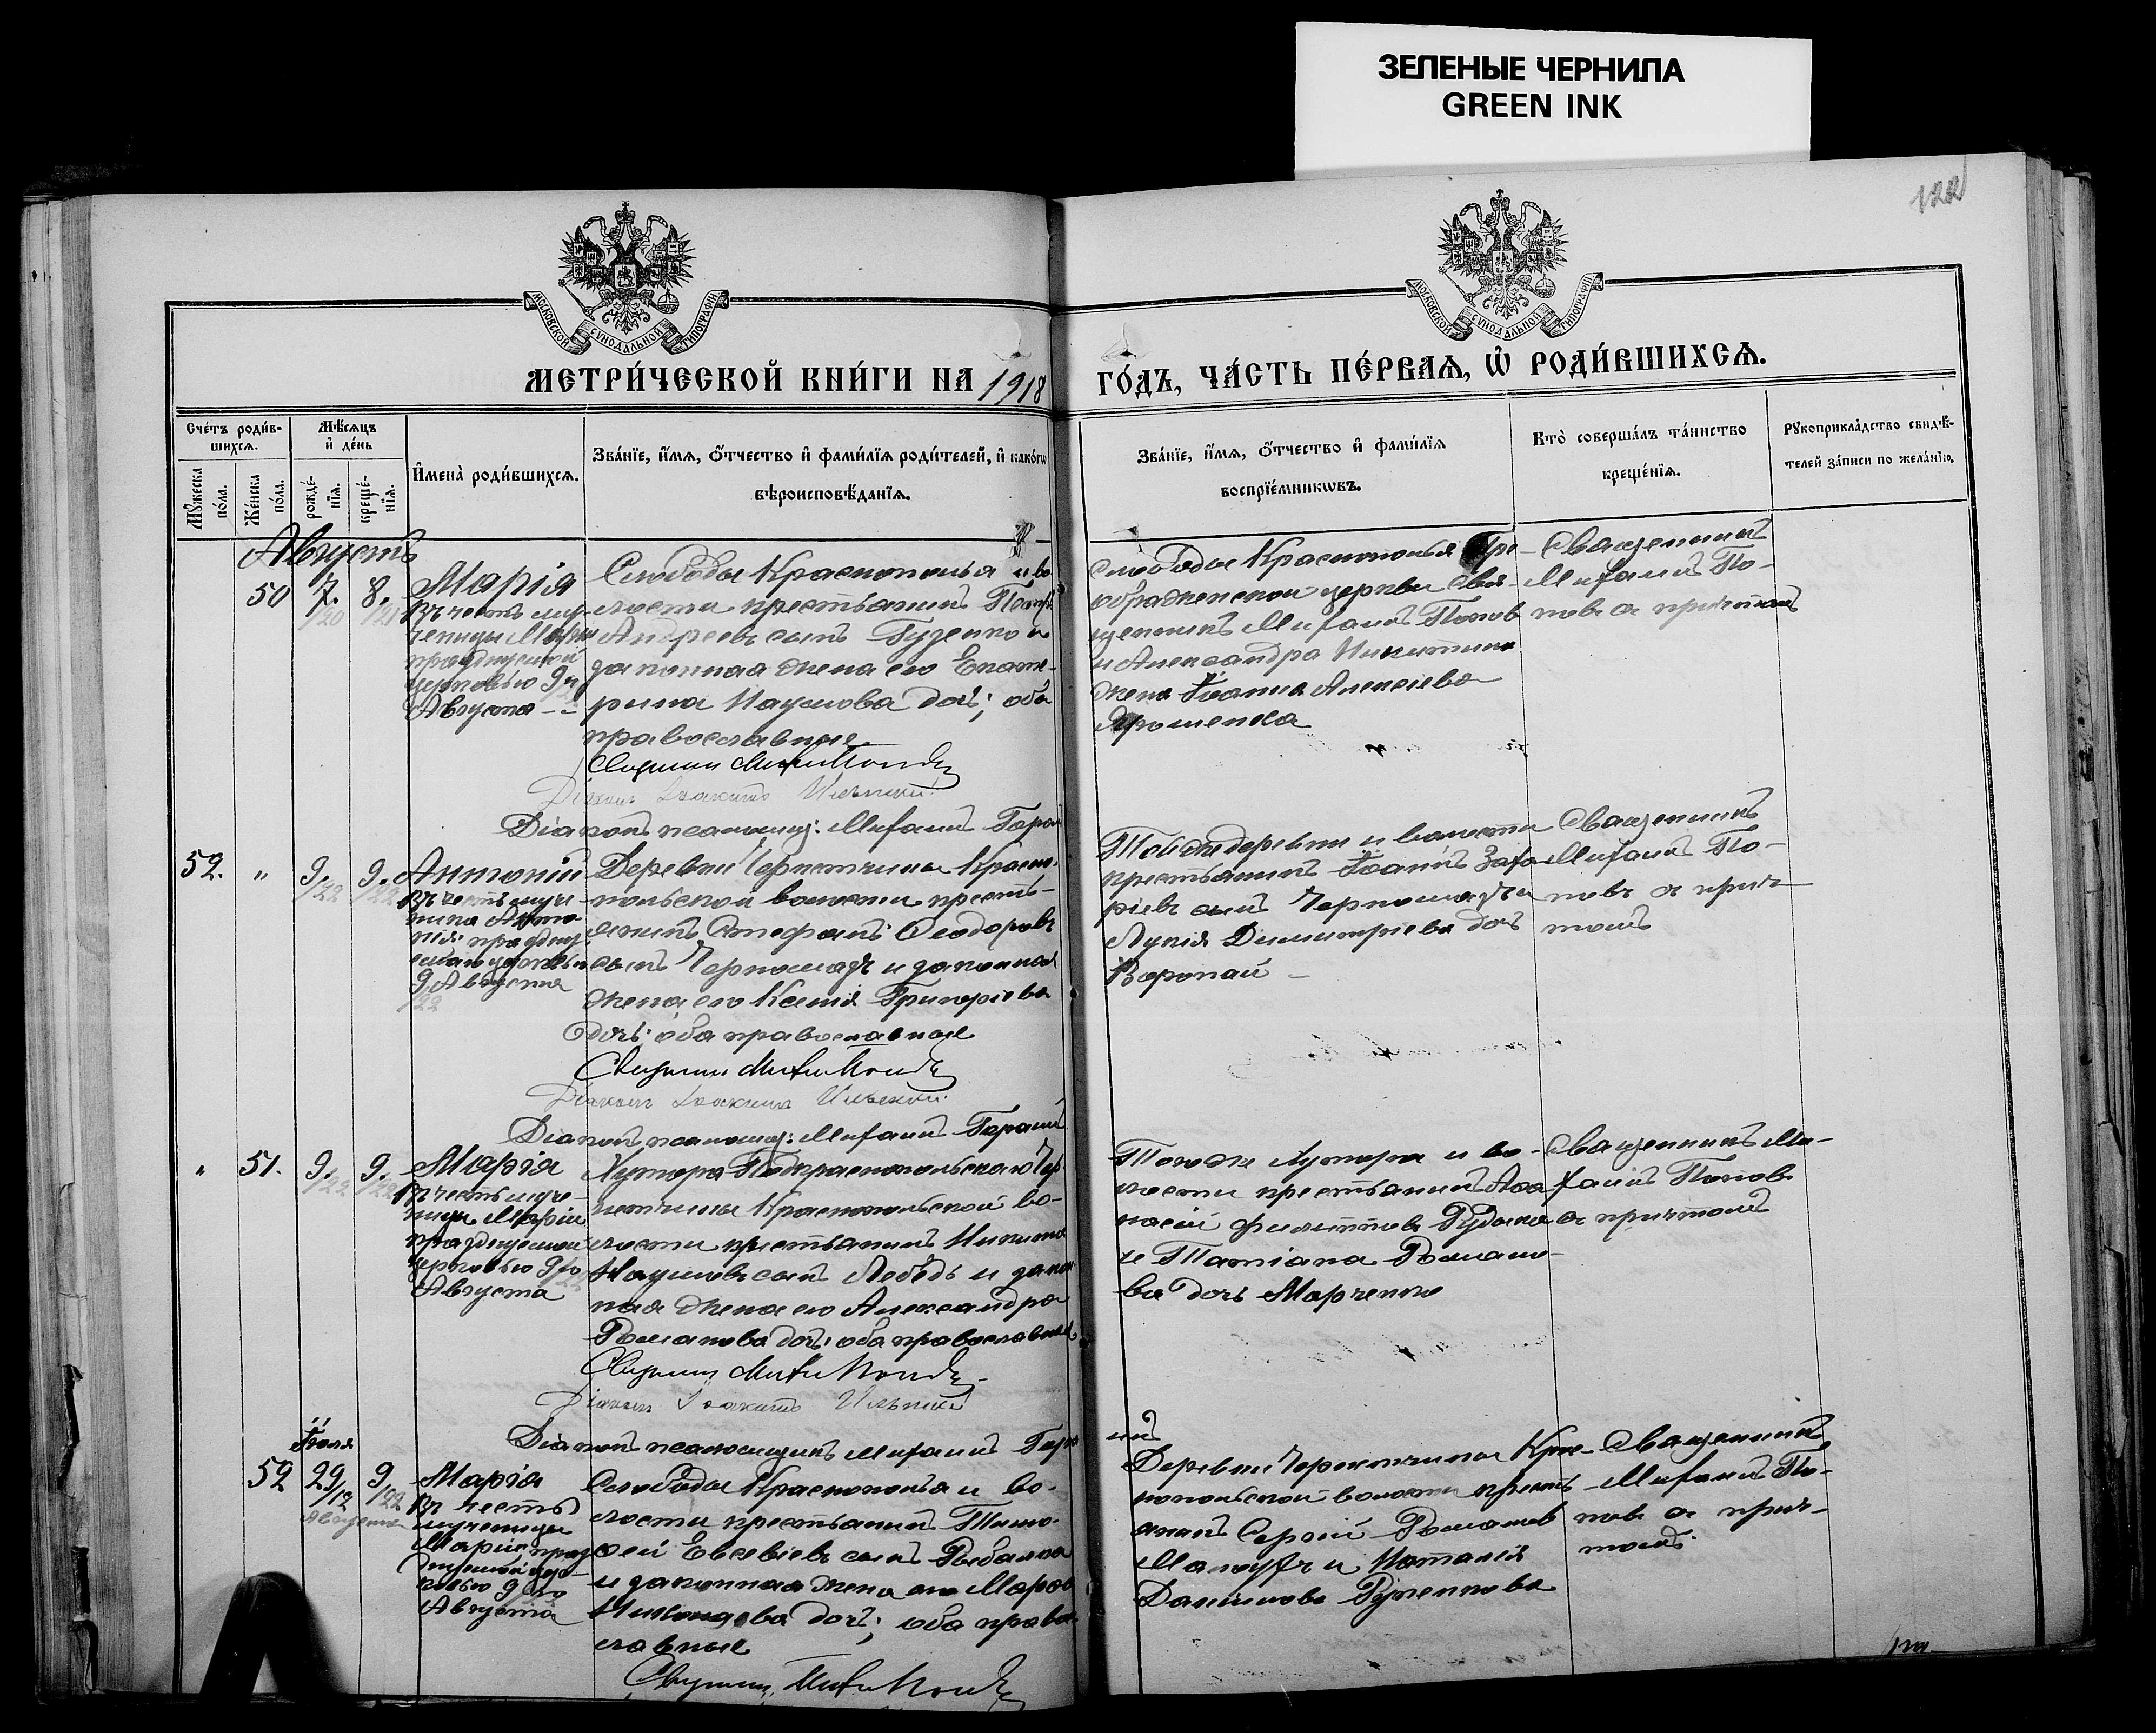 ЗЕЛЕНЫЕ ЧЕРНИЛА
GREEN INK
122
МОСКОВСКОЙ СѴНОДАЛЬНОЙ ТИПОГРАФІИ.
МОСКОВСКОЙ СѴНОДАЛЬНОЙ ТИПОГРАФІИ.
МЕТРИ́ЧЕСКОЙ КНИ́ГИ НА 1918
ГО́ДЪ, ЧА́СТЬ ПЕ́РВАЯ, Ѡ҆ РОДИ́ВШИХСЯ.
Сче́тъ роди́в-
шихся.
Мꙋжеска по́ла.
Же́нска по́ла.
Мѣ́сяцъ
и҆ де́нь
рожде́-
нїя.
креще́-
нїя.
И҆мена̀ роди́вшихся.
Зва́нїе, и҆́мя, ѻ҆́тчество и҆ фами́лїя роди́телей, и҆ како́гѡ
вѣроисповѣ́данїя.
Зва́нїе, и҆́мя, ѻ҆́тчество и҆ фами́лїя
воспрїе́мникѡвъ.
Кто̀ соверша́лъ та́инство
креще́нїя.
Рꙋкоприкла́дство свидѣ́-
телей за́писи по жела́нїю.
Августъ
50 7./20 8./21
Марія
Въ честь му-
ченицы Маріи
празднуемой
церковью 9го
Августа
Слободы Краснополья и во-
лости крестьянинъ Петръ
Андреевъ сынъ Гузенко и
законная жена его Екате-
рина Наумова дочь; оба
православные
Священникъ Митрофанъ Поповъ
Діаконъ Іоакимъ
Діаконъ псаломщ: Митрофанъ
Слободы Краснополья Пре-
ображенской церкви Свя-
щенникъ Митрофанъ Попов
и Александра Никитина
жена Іоанна Алексіева
Ярошенка
Священникъ
Митрофанъ По-
повъ съ причтомъ
52. " 9./22 9./22
Антоній
Въ честь муче-
ника Анто-
нія праздну-
емаго церковью
9 Августа
/22
Деревни Чернетчины Красно-
польской волости кресть-
янинъ Стефанъ Ѳеодоровъ
сынъ Черномазъ и законная
жена его Ксенія Григоріева
дочь; оба православные
Священникъ Митрофанъ Поповъ
Діаконъ Іоакимъ
Діаконъ псаломщ: Митрофанъ
Той же деревни и волости
крестьянинъ Іоаннъ Заха-
ріевъ сынъ Черномазъ и
Лукія Димитріева дочь
Воропай
Священникъ
Митрофанъ По-
повъ съ прич-
томъ
" 51. 9./22 9./22
Марія
Въ честь муче-
ницы Маріи
празднуемой
церковью 9го
Августа
Хутора Подкраснопольскаго Чер-
нетчины Краснопольской во-
лости крестьянинъ Никита
Наумовъ сынъ Лебедь и закон-
ная жена его Александра
Романова дочь; оба православные
Священникъ Митрофанъ Поповъ
Діаконъ Іоакимъ
Діаконъ псаломщикъ Митрофанъ
Того же хутора и во-
лости крестьянинъ Аѳа-
насій Филипповъ Рудыка
и Татіана Романо-
ва дочь Марченко
Священникъ Ми-
трофанъ Поповъ
съ причтомъ
Іюля
52 29/12 9/22
Августа
Марія
Въ честь
мученицы
Маріи праз-
днуемой цер-
ковью 9го
Августа
Слободы Краснополья и во-
лости крестьянинъ Тимо-
ѳей Евсевіевъ сынъ Рыбалка
и законная жена его
дочь; оба право-
славные
Священникъ Митрофанъ Поповъ
Деревни Чернетчины Крас-
нопольской волости кресть-
янинъ Сергій Романовъ
и Наталія
Даниилова
Священникъ
Митрофанъ По-
повъ съ прич-
томъ